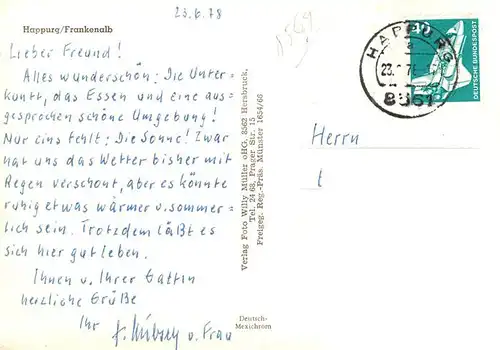 23.6.78
Happurg/Frankenalb
Lieber Freund!
Alles wunderschön: Die Unter-
kunft, das Essen und eine aus-
gesprochen schöne Umgebung!
Nur eins fehlt: Die Sonne! Zwar
hat uns das Wetter bisher mit
Regen verschont, aber es könnte
ruhig etwas wärmer u. sommer-
lich sein. Trotzdem läßt es
sich hier gut leben.
Ihnen u. Ihrer Gattin
herzliche Grüße
Ihr u. Frau
Deutsch-
Mexichrom
Verlag Foto Willy Müller oHG, 8562 Hersbruck,
Tel. 24 68, Prager Str. 15
Freigeg. Reg.-Präs. Münster 1654/66
HAPPURG
a
23.
8561
DEUTSCHE BUNDESPOST
Herrn